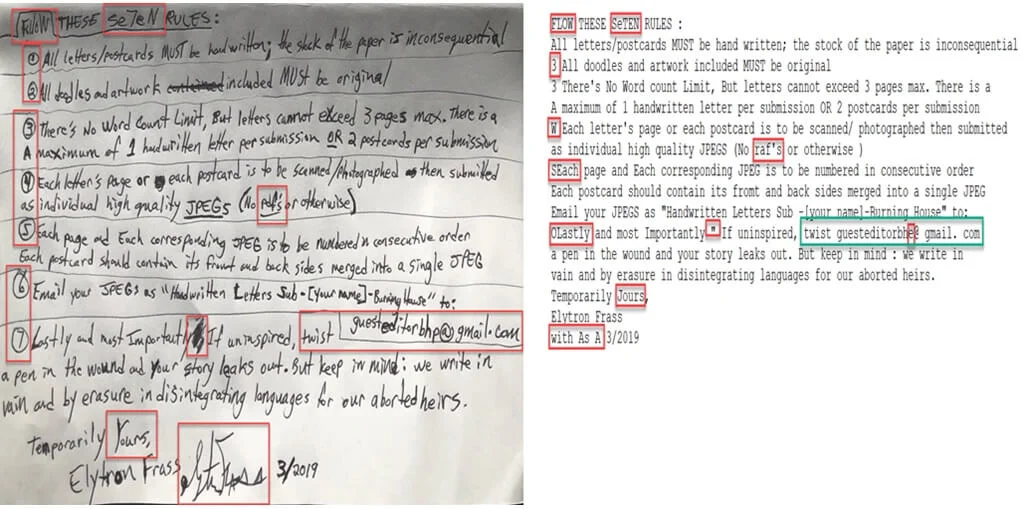 Follow THESE Se7eN RULES:
① All letters/postcards MUST be handwritten; the stock of the paper is inconsequential
② All doodles and artwork included MUST be original
③ There's No Word Count Limit, But letters cannot exceed 3 pages max. There is a
A maximum of 1 handwritten letter per submission OR 2 postcards per submission
④ Each letter's page or each postcard is to be scanned/photographed then submitted
as individual high quality JPEGS (No pdfs or otherwise)
⑤ Each page and Each corresponding JPEG is to be numbered in consecutive order
Each postcard should contain its front and back sides merged into a single JPEG
⑥ Email your JPEGS as "Handwritten Letters Sub-[your name]-Burning House" to:
guesteditorbhp@gmail.com
⑦ Lastly and most Importantly If uninspired, twist
a pen in the wound and your story leaks out. But keep in mind: we write in
vain and by erasure in disintegrating languages for our aborted heirs.
Temporarily Yours,
Elytron Frass
3/2019
FLOW THESE SeTEN RULES :
All letters/postcards MUST be hand written; the stock of the paper is inconsequential
3 All doodles and artwork included MUST be original
3 There's No Word count Limit, But letters cannot exceed 3 pages max. There is a
A maximum of 1 handwritten letter per submission OR 2 postcards per submission
W Each letter's page or each postcard is to be scanned/ photographed then submitted
as individual high quality JPEGS (No raf's or otherwise )
SEach page and Each corresponding JPEG is to be numbered in consecutive order
Each postcard should contain its fromt and back sides merged into a single JPEG
Email your JPEGS as "Handwritten Letters Sub -[your name]-Burning House" to:
OLastly and most Importantly " If uninspired, twist guesteditorbhe@ gmail. com
a pen in the wound and your story leaks out. But keep in mind : we write in
vain and by erasure in disintegrating languages for our aborted heirs.
Temporarily Jours,
Elytron Frass
with As A 3/2019